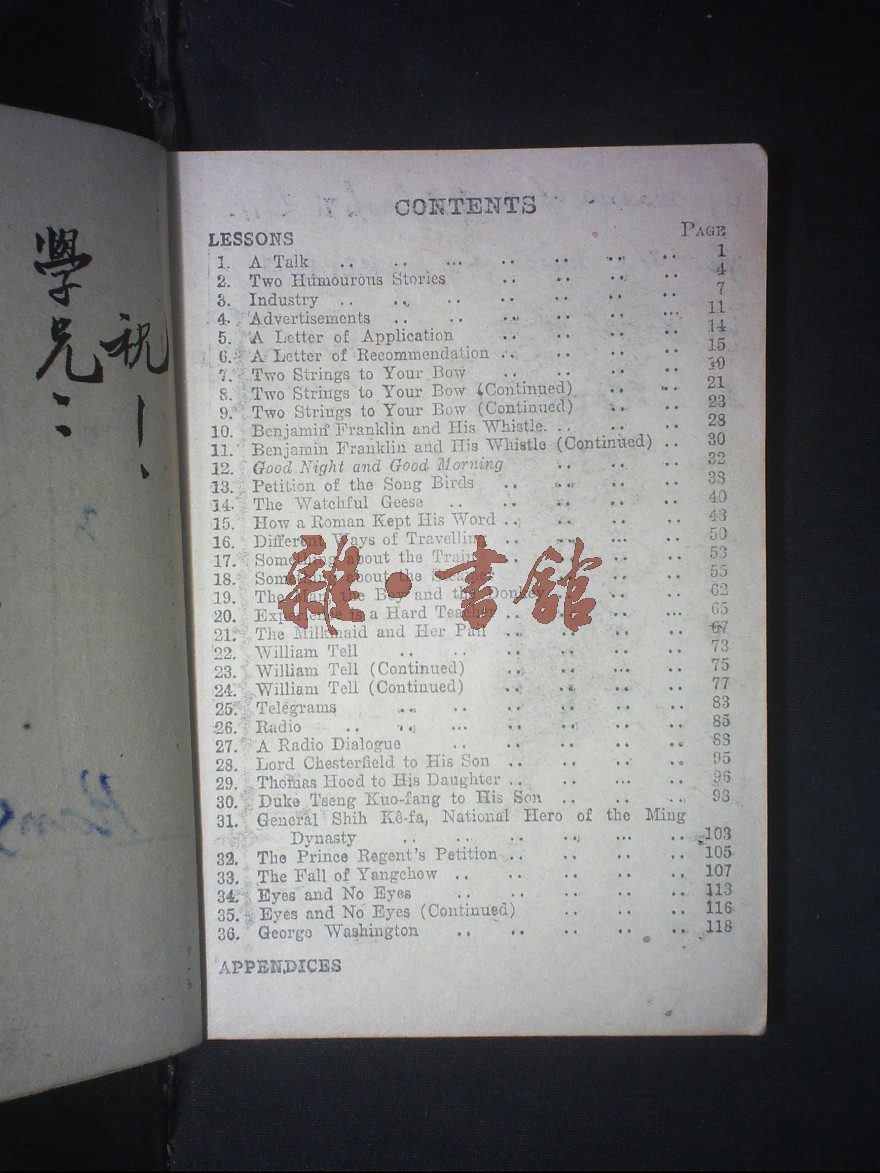 學兄：
祝一、
CONTENTS
LESSONS PAGE
1. A Talk .. .. ... .. .. ... .. 1
2. Two Humourous Stories .. .. .. .. 4
3. Industry .. .. .. .. .. .. .. 7
4. Advertisements .. .. .. .. .. ... 11
5. A Letter of Application .. .. .. .. 14
6. A Letter of Recommendation .. .. .. .. .. 15
7. Two Strings to Your Bow .. .. .. .. 19
8. Two Strings to Your Bow (Continued) .. .. 21
9. Two Strings to Your Bow (Continued) .. .. 23
10. Benjamin Franklin and His Whistle. .. .. .. 28
11. Benjamin Franklin and His Whistle (Continued) .. 30
12. Good Night and Good Morning .. .. .. 32
13. Petition of the Song Birds .. .. .. .. 38
14. The Watchful Geese .. .. .. .. .. 40
15. How a Roman Kept His Word .. .. .. .. 43
16. Different Ways of Travelling .. .. .. .. 50
17. Something about the Train .. .. .. 53
18. Something about the Steamer .. .. 55
19. The Man, the Boy and the Donkey .. .. .. 62
20. Experience is a Hard Teacher .. .. .. .. 65
21. The Milkmaid and Her Pail .. .. .. .. 67
22. William Tell .. .. .. .. .. .. 73
23. William Tell (Continued) .. .. .. .. 75
24. William Tell (Continued) .. .. .. .. 77
25. Telegrams .. .. .. .. .. .. 83
26. Radio .. .. ... .. .. .. .. 85
27. A Radio Dialogue .. .. .. .. .. 88
28. Lord Chesterfield to His Son .. .. .. .. 95
29. Thomas Hood to His Daughter .. .. ... .. 96
30. Duke Tseng Kuo-fang to His Son .. .. .. .. 98
31. General Shih Kê-fa, National Hero of the Ming
Dynasty .. .. .. .. ... .. 103
32. The Prince Regent's Petition .. .. .. .. 105
33. The Fall of Yangchow .. .. .. .. .. 107
34. Eyes and No Eyes .. .. .. .. .. 113
35. Eyes and No Eyes (Continued) .. .. .. 116
36. George Washington .. .. .. .. .. 118
APPENDICES
雜·書館